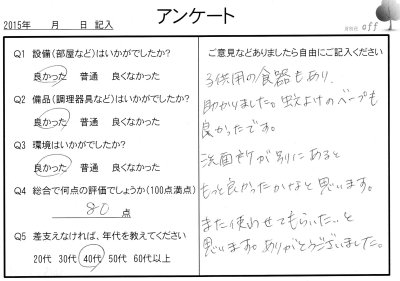 アンケート
2015年 月 日 記入
off
Q1 設備(部屋など)はいかがでしたか?
良かった 普通 良くなかった
Q2 備品(調理器具など)はいかがでしたか?
良かった 普通 良くなかった
Q3 環境はいかがでしたか?
良かった 普通 良くなかった
Q4 総合で何点の評価でしょうか(100点満点)
80 点
Q5 差支えなければ、年代を教えてください
20代 30代 40代 50代 60代以上
ご意見などありましたら自由にご記入ください
子供用の食器もあり、
助かりました。蚊よけのベープも
良かったです。
洗面所が別にあると
もっと良かったかなと思います。
また使わせてもらいたいと
思います。ありがとうございました。